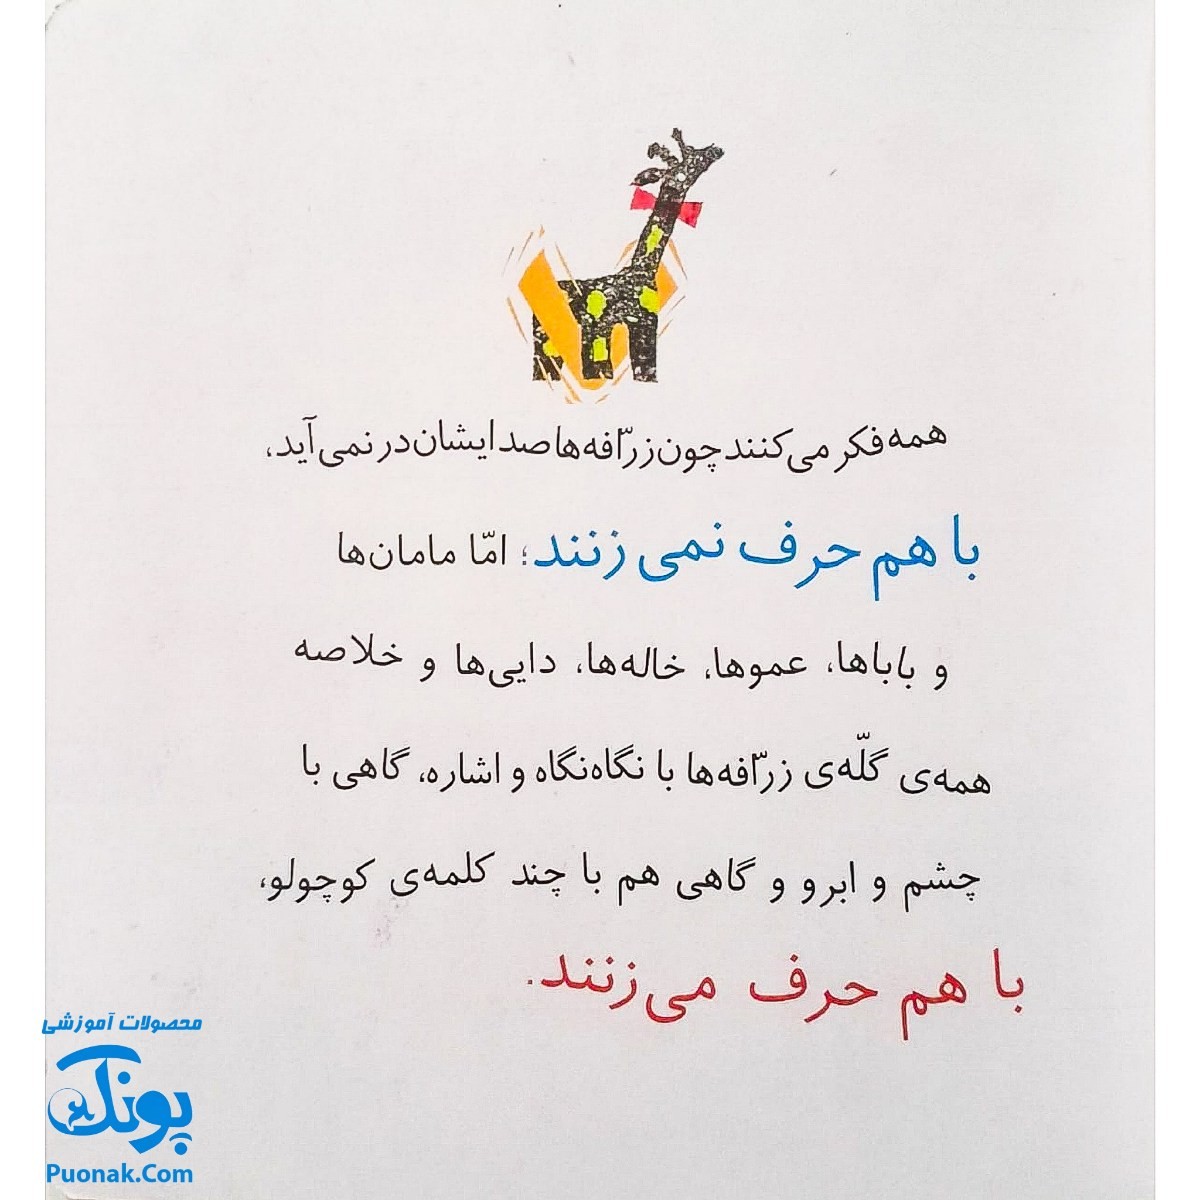 همه فکر می‌کنند چون زرّافه‌ها صدایشان در نمی‌آید،
با هم حرف نمی زنند؛ امّا مامان‌ها
و باباها، عموها، خاله‌ها، دایی‌ها و خلاصه
همه‌ی گلّه‌ی زرّافه‌ها با نگاه‌نگاه و اشاره، گاهی با
چشم و ابرو و گاهی هم با چند کلمه‌ی کوچولو،
با هم حرف می‌زنند.
محصولات آموزشی
پونک
Puonak.Com